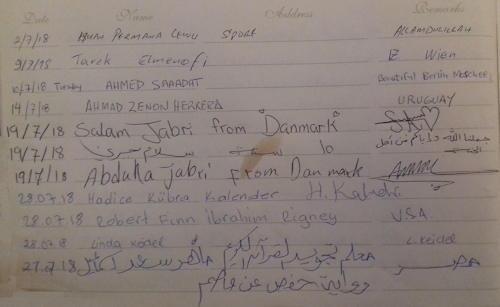 Date Name Address Remarks
2/7/18 PERMANA SPORE ALLAMDULILLAH
9/7/18 Tarek Elmenofi Wien
10/7/18 Turkey AHMED SAAADAT Beautiful Berlin Moschee
14/7/18 AHMAD ZENON HERRERA URUGUAY
19/7/18 Salam Jabri from Danmark
19/7/18 سلام جبري
19/7/18 Abdulla Jabri From Danmark
28.07.18 Hadice Kübra Kalender
28.07.18 Robert Finn Ibrahim Rigney USA
28.07.18 Linda Keidel L. Keidel
27.7.18 معلم تجويد القرآن الكريم مصر
رواية حفص عن عاصم